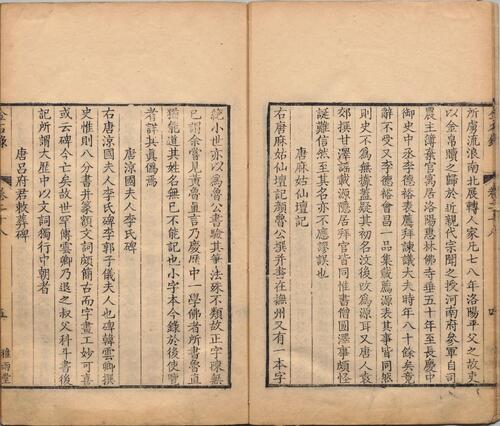 所虜流浪南北展轉人家凡七八年洛陽平父之故吏
以金帛贖之歸於近親代宗聞之授河南府參軍自司
農主簿棄官寓居洛陽惠林佛寺垂五十年至長慶中
御史中丞李德裕表薦拜諫議大夫時年八十餘矣竟
辭不受又李德裕會昌一品集載薦源表其事皆同然
則史不為無據蓋疑其初名汶後改為源耳又唐人袁
郊撰甘澤謠載源隱居拜官皆同惟書僧圓澤事頗怪
誕難信然至其名亦不應謬誤也
唐麻姑仙壇記
右唐麻姑仙壇記顏魯公撰并書在撫州又有一本字
絕小世亦以為魯公書驗其筆法殊不類故正字陳無
已謂余嘗見黃魯直言乃慶歷中一學佛者所書魯直
猶能道其姓名無已不能記也小字本今錄於後使覽
者詳其真偽焉
唐涼國夫人李氏碑
右唐涼國夫人李氏碑李郭子儀夫人也碑韓雲卿撰
史惟則八分書并篆額文詞頗簡古而字畫工妙可喜
或云碑今亡矣故世罕傳雲卿乃退之叔父科斗書後
記所謂大歷中以文詞獨行中朝者
唐呂府君敕葬碑
金石錄 卷二十八 五 雅雨堂